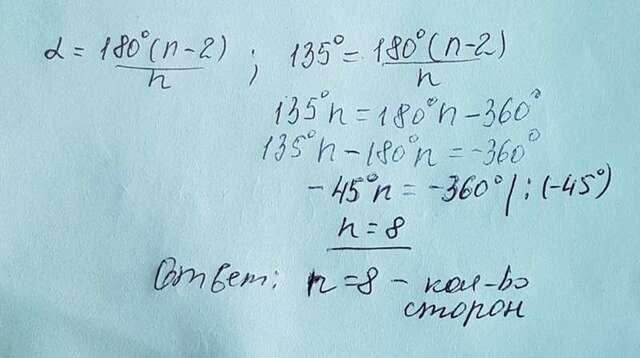 α = 180°(n-2)/n ; 135° = 180°(n-2)/n
135°n = 180°n - 360°
135°n - 180°n = -360°
-45°n = -360° | : (-45°)
n = 8
Ответ: n = 8 - кол-во
сторон